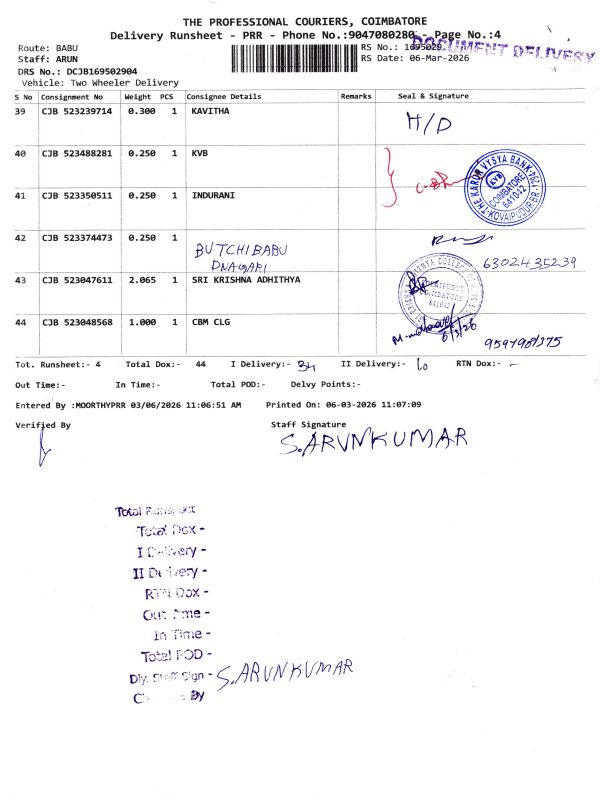 THE PROFESSIONAL COURIERS, COIMBATORE
Delivery Runsheet - PRR - Phone No.:9047080280 - Page No.:4
DOCUMENT DELIVERY
Route: BABU
RS No.: 1695029
Staff: ARUN
RS Date: 06-Mar-2026
DRS No.: DCJB169502904
Vehicle: Two Wheeler Delivery
S No Consignment No Weight PCS Consignee Details Remarks Seal & Signature
39 CJB 523239714 0.300 1 KAVITHA H/D
40 CJB 523488281 0.250 1 KVB
THE KARUR VYSYA BANK
KVB
COIMBATORE
641042
KOVAIPUDUR BR
41 CJB 523350511 0.250 1 INDURANI
42 CJB 523374473 0.250 1
BUTCHIBABU 6302435239
43 CJB 523047611 2.065 1 SRI KRISHNA ADHITHYA
44 CJB 523048568 1.000 1 CBM CLG
6/3/26
Tot. Runsheet:- 4 Total Dox:- 44 I Delivery:- 34 II Delivery:- 10 RTN Dox:- -
Out Time:- In Time:- Total POD:- Delvy Points:-
Entered By :MOORTHYPRR 03/06/2026 11:06:51 AM Printed On: 06-03-2026 11:07:09
Verified By Staff Signature
S.ARUNKUMAR
Total Runsheet
Total Dox -
I Delivery -
II Delivery -
RTN Dox -
Out Time -
In Time -
Total POD -
Dly. Staff Sign - S.ARUNKUMAR
By